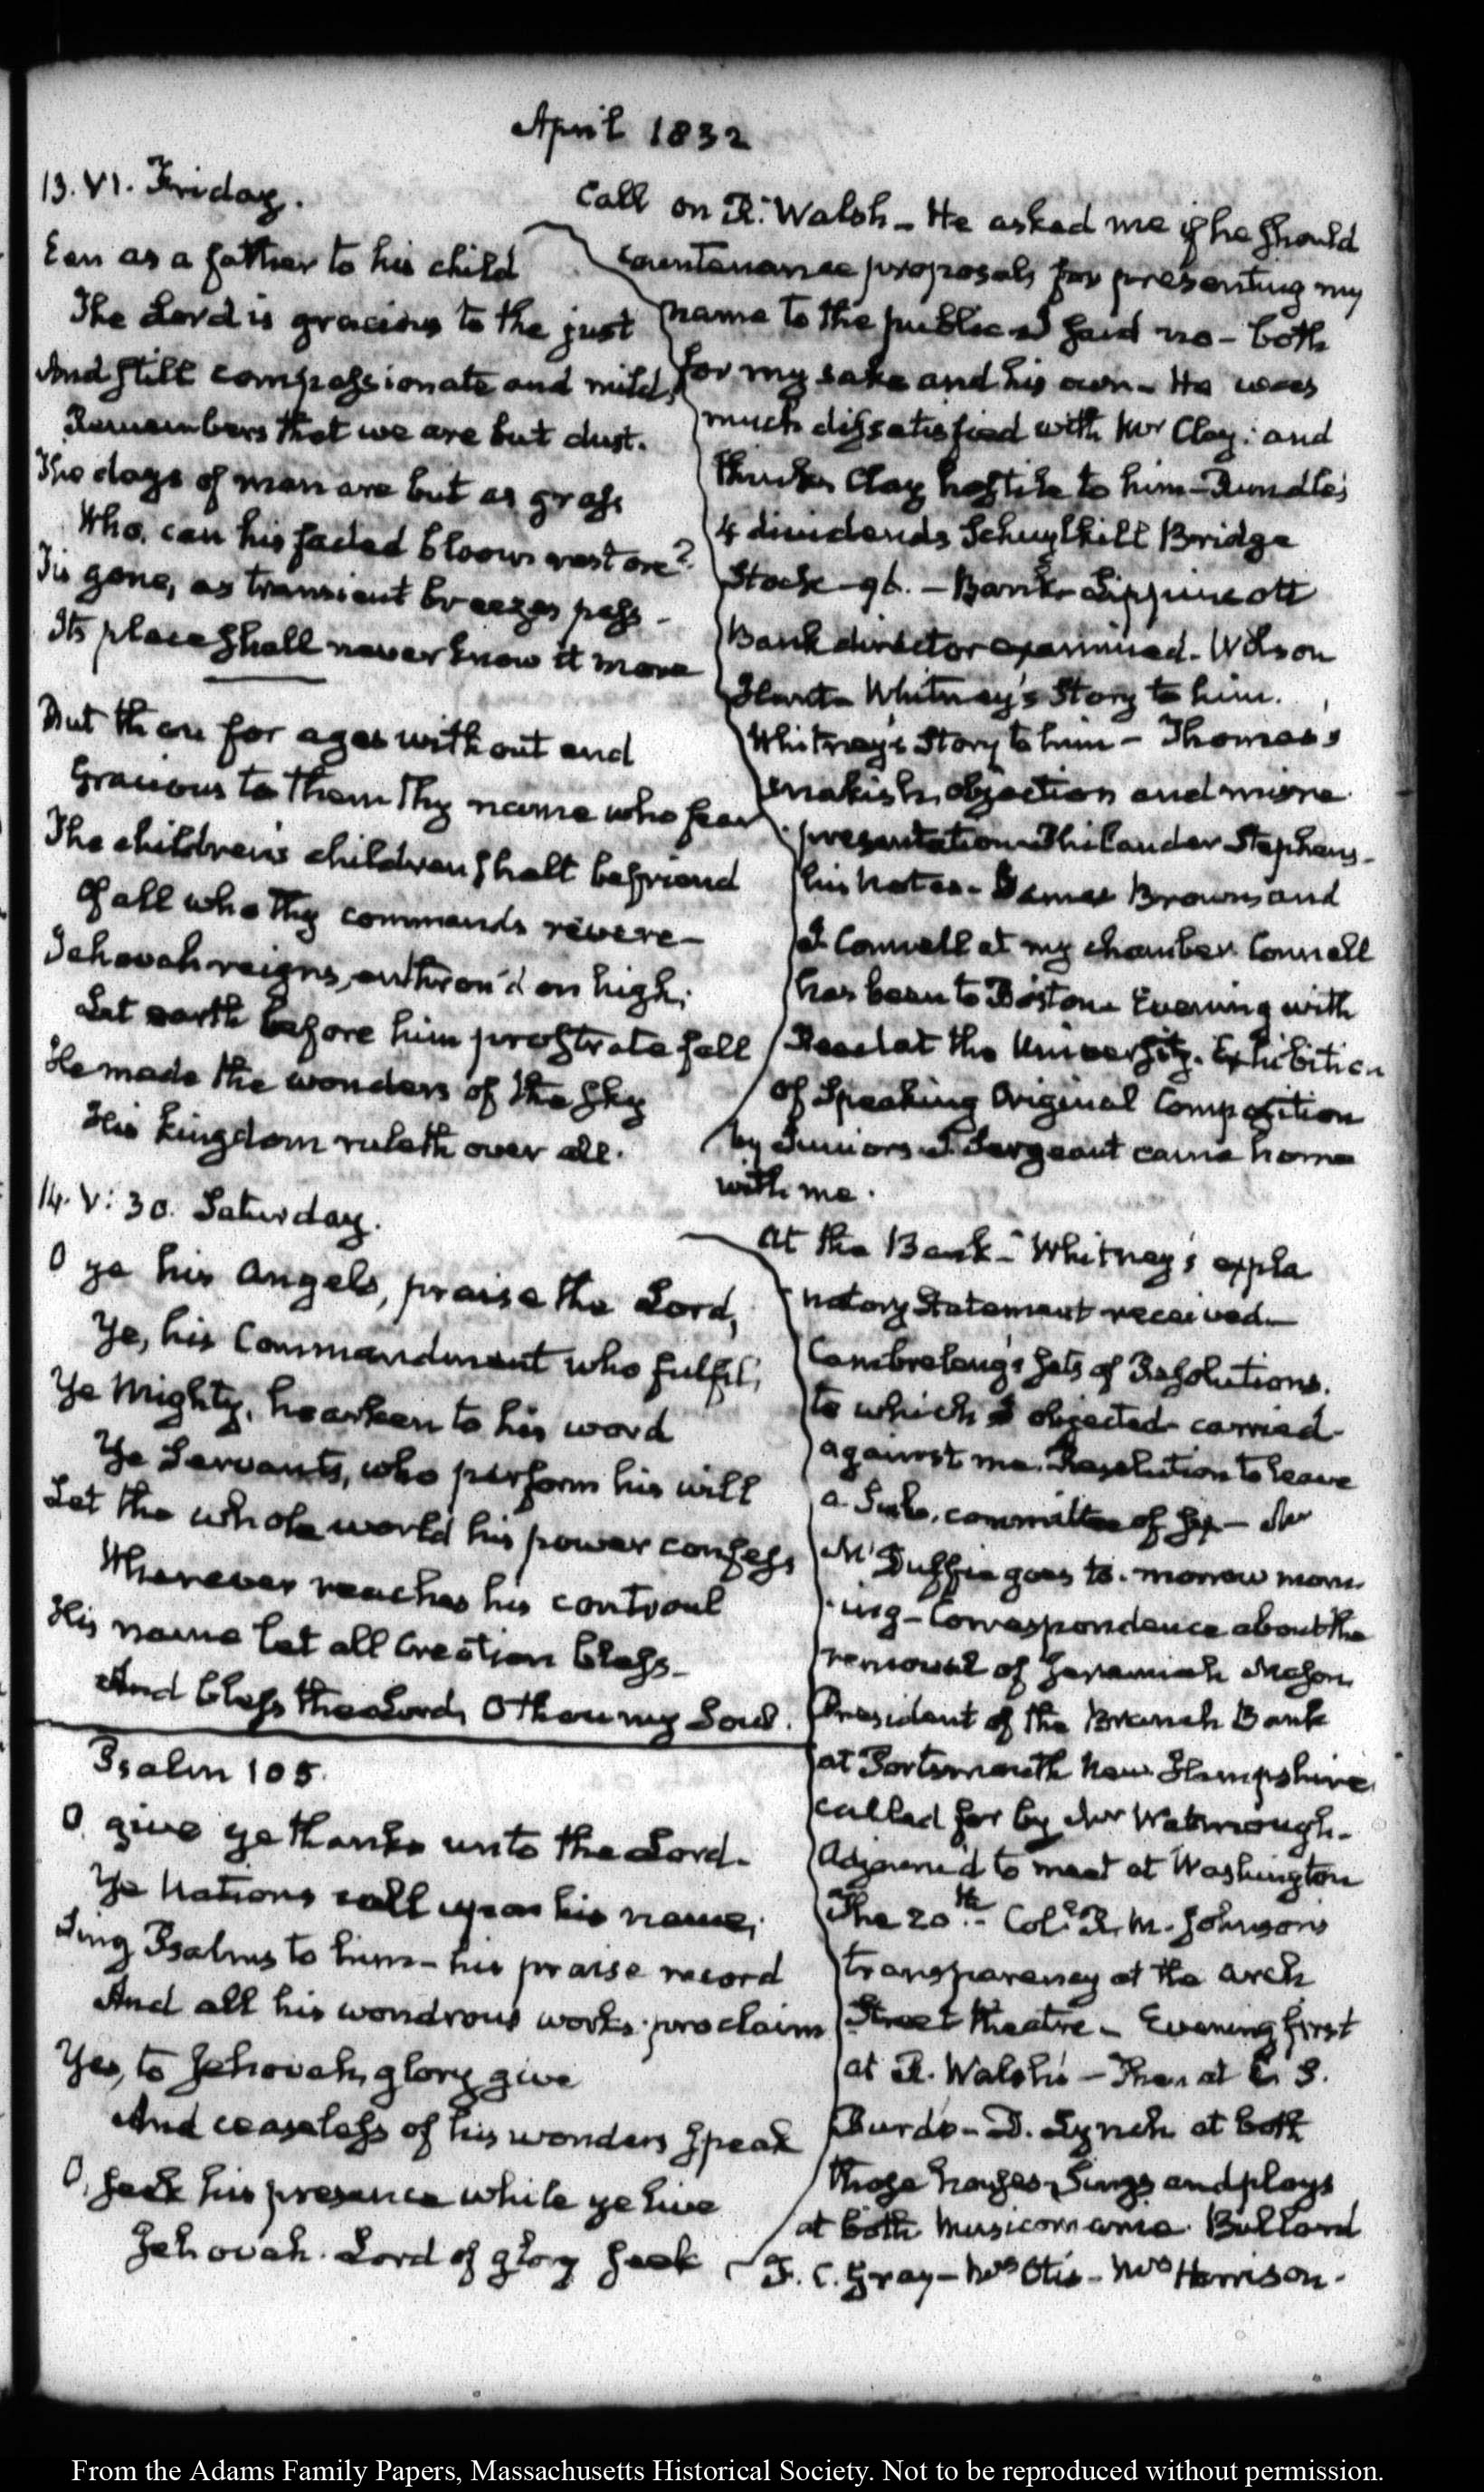 April 1832
13. VI. Friday.
Een as a father to his child
The Lord is gracious to the just
And still compassionate and mild,
Remembers that we are but dust.
The days of man are but as grass
Who, can his faded bloom restore?
Tis gone, as transient breezes pass -
Its place shall never know it more
But thou for ages without end
Gracious to them Thy name who fear
The children's children shalt befriend
Of all who Thy commands revere -
Jehovah reigns, enthron'd on high;
Let earth before him prostrate fall
He made the wonders of the sky
His kingdom ruleth over all.
Call on R. Walsh - He asked me if he should
countenance proposals for presenting my
name to the public I said no - both
for my sake and his own - He was
much dissatisfied with Mr Clay: and
thinks Clay hostile to him - Rundle's
4 dividends Schuylkill Bridge
Stock - 96. - Bank - Lippincott
Bank director examined. Wilson
Hunt - Whitney's Story to him.
Whitney's Story to him - Thomas's
snakish objection and misre
presentation - Philander Stephens -
his notes - James Brown and
J. Connell at my chamber. Connell
has been to Boston - Evening with
at the University. Exhibition
of Speaking Original Composition
by Juniors - J. Sergeant came home
with me.
14. V: 30. Saturday.
O ye his Angels, praise the Lord,
Ye, his Commandment who fulfil,
Ye Mighty, hearken to his word
Ye Servants, who perform his will
Let the whole world his power confess
Wherever reaches his controul
His name let all Creation bless -
And bless the Lord, O thou my Soul.
Psalm 105.
O, give ye thanks unto the Lord -
Ye Nations call upon his name;
Sing Psalms to him - his praise record
And all his wondrous works proclaim
Yes, to Jehovah, glory give
And ceaseless of his wonders speak
O, seek his presence while ye live
Jehovah. Lord of glory seek
At the Bank - Whitney's expla
natory Statement received -
Cambreleng's sets of Resolutions.
to which I objected - carried
against me. Resolution to leave
a Sub. committee of six - Mr
McDuffie goes to-morrow morn
ing - Correspondence about the
removal of Jeremiah Mason
President of the Branch Bank
at Portsmouth New Hampshire
called for by Mr Watmough -
Adjourn'd to meet at Washington
The 20th. Coll. R. M. Johnson's
transparency at the Arch
Street theatre - Evening first
at R. Walsh's - Then at E. S.
Burd's - D. Lynch at both
those houses - Sings and plays
at both Musicomania. Bullard
F. C. Gray - Mrs Otis - Mrs Harrison.
From the Adams Family Papers, Massachusetts Historical Society. Not to be reproduced without permission.